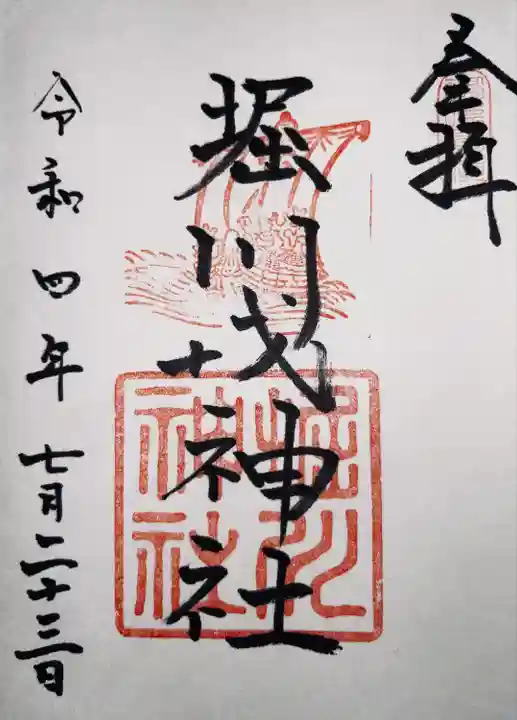 奉拝
堀川戎神社
堀川
神社
令和四年七月二十三日